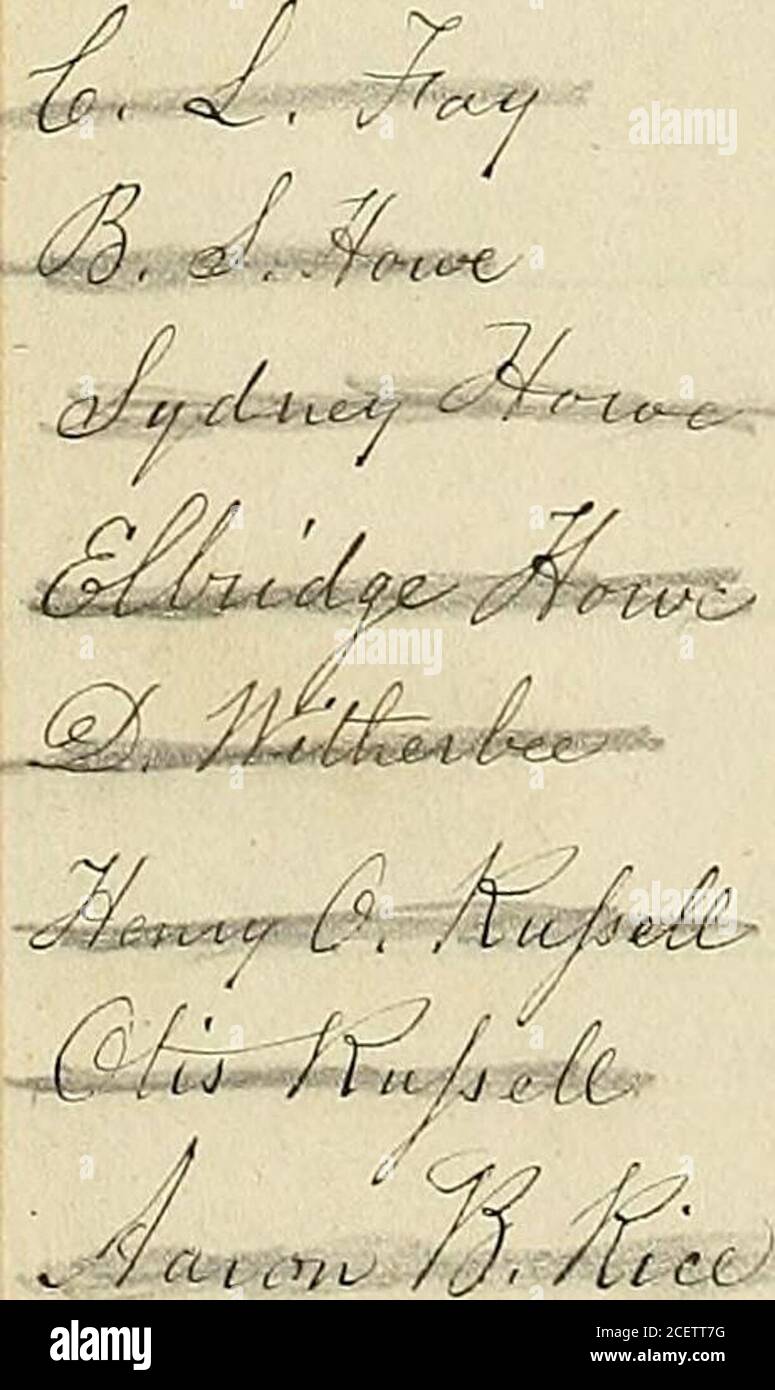 C. L. Fay
B. S. Howe
Sydney Howe
Elbridge Howe
D. Witherbee
Henry O. Russell
Otis Russell
Aaron B. Rice
alamy
Image ID: 2CETT7G
www.alamy.com